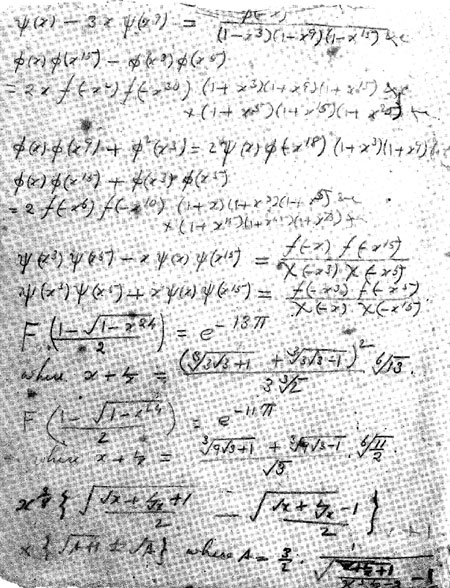 ψ(x) − 3x ψ(x⁹) = φ(−x) / (1−x³)(1−x⁹)(1−x¹⁵) &c
φ(x) φ(x¹⁵) − φ(x³) φ(x⁵)
= 2x f(−x²) f(−x³⁰) (1+x³)(1+x⁹)(1+x¹⁵) &c
× (1+x⁵)(1+x¹⁵)(1+x²⁵) &c
φ(x) φ(x⁹) + φ²(x³) = 2ψ(x) φ(−x¹⁸) (1+x³)(1+x⁹)
φ(x) φ(x¹⁵) + φ(x³) φ(x⁵)
= 2 f(−x⁶) f(−x¹⁰) (1+x)(1+x³)(1+x⁵) &c
× (1+x¹⁵)
ψ(x³) ψ(x⁵) − x ψ(x) ψ(x¹⁵) = f(−x) f(−x¹⁵) / χ(−x³) χ(−x⁵)
ψ(x³) ψ(x⁵) + x ψ(x) ψ(x¹⁵) = f(−x³) f(−x⁵) / χ(−x) χ(−x¹⁵).
F (1−√(1−x²⁴) / 2) = e^(−13π)
where x + 1/x = (∛(3√3+1) + ∛(3√3−1))² / 3∛2 · ⁶√13.
F (1−√(1−x²⁴) / 2) = e^(−11π)
where x + 1/x = ∛(9√3+1) + ∛(9√3−1) / √3 · ⁶√(11/2)
{ √(√x + 1/√x + 1 / 2) − √(√x + 1/√x − 1 / 2) }
× { √(A+1) ± √A } where A = 3/2 ·